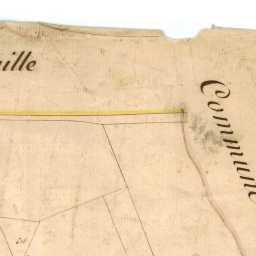 ille
Commune